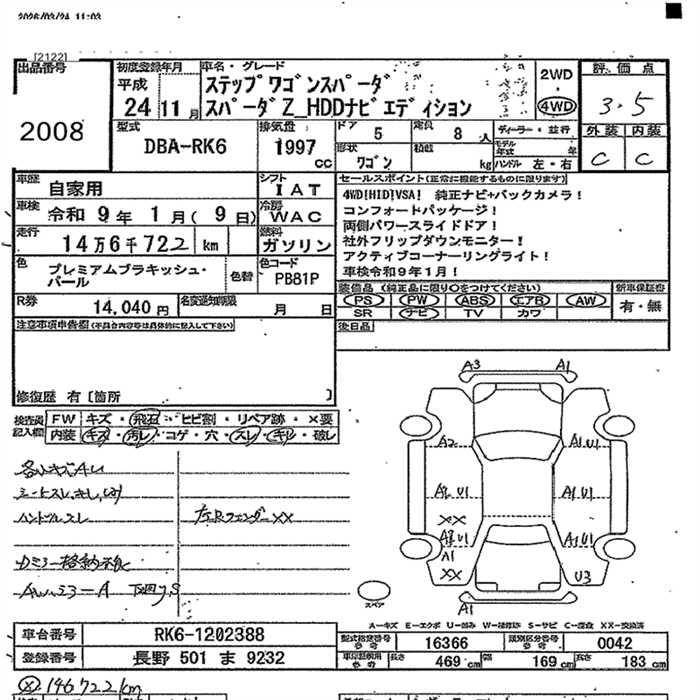 2026/03/24 11:03
[2122]
出品番号
2008
初度登録年月
平成
24年11月
車名・グレード
ステップワゴンスパーダ
スパーダZ_HDDナビエディション
2WD
・
4WD
評価点
3.5
外装 内装
C C
型式
DBA-RK6
排気量
1997
cc
ドア
5
定員
8人
形状
ワゴン
積載
kg
ディーラー・並行
モデル年式
年
ハンドル 左・右
車歴
自家用
シフト
IAT
車検
令和 9年 1月( 9日)
冷房
WAC
走行
14万6千722 km
燃料
ガソリン
色
プレミアムブラキッシュ・パール
色替
色コード
PB81P
R券
14,040円
名変通知期限
月 日
セールスポイント(正常に機能するものに限ります)
4WD!HID!VSA! 純正ナビ+バックカメラ!
コンフォートパッケージ!
両側パワースライドドア!
社外フリップダウンモニター!
アクティブコーナーリングライト!
車検令和9年1月!
装備品 (純正品に限り○をつけてください)
PS PW ABS エアB AW
SR ナビ TV カワ
新車保証書
有・無
後日品
注意事項申告欄(不具合内容等は具体的に記入して下さい)
修復歴 有〔箇所 〕
検査員記入欄
FW キズ・飛石・ヒビ割・リペア跡・×要
内装 キズ・汚レ・コゲ・穴・スレ・キレ・破レ
ハンドルスレ
左Rフェンダー××
A3 A1
A2 A1 U1
A2 U1 A1 U1
××
A2 U1 A1 U1
A1
×× U3
A1
スペア
A-キズ E-エクボ U-凹み W-補修跡 S-サビ C-腐食 XX-交換済
車台番号
RK6-1202388
登録番号
長野 501 ま 9232
型式指定番号
参考
16366
類別区分番号
参考
0042
車庫証明用
参考
長さ
469cm
幅
169cm
高さ
183cm
146722km